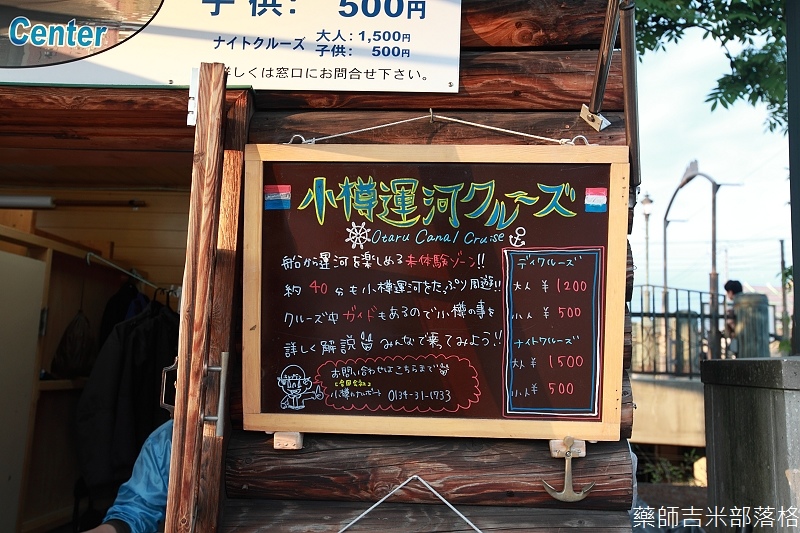 Center
子供： 500円
ナイトクルーズ 大人：1,500円
子供： 500円
詳しくは窓口にお問合せ下さい。
小樽運河クルーズ
Otaru Canal Cruise
船から運河を楽しめる未体験ゾーン!!
約40分も小樽運河をたっぷり周遊!!
クルーズ中ガイドもあるので小樽の事を
詳しく解説 みんなで乗ってみよう!!
お問い合わせはこちらまで
0134-31-1733
デイクルーズ
大人 ¥1200
小人 ¥500
ナイトクルーズ
大人 ¥1500
小人 ¥500
藥師吉米部落格